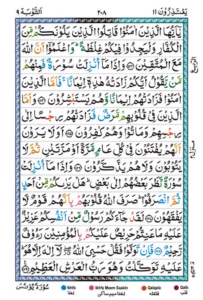 يَعْتَذِرُوْنَ ١١ ٢٠٨ اَلتَّوْبَة ٩
يٰٓاَيُّهَا الَّذِيْنَ اٰمَنُوْا قَاتِلُوا الَّذِيْنَ يَلُوْنَكُمْ مِّنَ
الْكُفَّارِ وَلْيَجِدُوْا فِيْكُمْ غِلْظَةً وَاعْلَمُوْٓا اَنَّ اللّٰهَ
مَعَ الْمُتَّقِيْنَ وَاِذَا مَآ اُنْزِلَتْ سُوْرَةٌ فَمِنْهُمْ
مَّنْ يَّقُوْلُ اَيُّكُمْ زَادَتْهُ هٰذِهٖٓ اِيْمَانًا فَاَمَّا الَّذِيْنَ
اٰمَنُوْا فَزَادَتْهُمْ اِيْمَانًا وَّهُمْ يَسْتَبْشِرُوْنَ وَاَمَّا
الَّذِيْنَ فِيْ قُلُوْبِهِمْ مَّرَضٌ فَزَادَتْهُمْ رِجْسًا اِلٰى
رِجْسِهِمْ وَمَاتُوْا وَهُمْ كٰفِرُوْنَ اَوَلَا يَرَوْنَ
اَنَّهُمْ يُفْتَنُوْنَ فِيْ كُلِّ عَامٍ مَّرَّةً اَوْ مَرَّتَيْنِ ثُمَّ لَا
يَتُوْبُوْنَ وَلَا هُمْ يَذَّكَّرُوْنَ وَاِذَا مَآ اُنْزِلَتْ
سُوْرَةٌ نَّظَرَ بَعْضُهُمْ اِلٰى بَعْضٍ هَلْ يَرٰىكُمْ مِّنْ اَحَدٍ
ثُمَّ انْصَرَفُوْا صَرَفَ اللّٰهُ قُلُوْبَهُمْ بِاَنَّهُمْ قَوْمٌ لَّا
يَفْقَهُوْنَ لَقَدْ جَآءَكُمْ رَسُوْلٌ مِّنْ اَنْفُسِكُمْ عَزِيْزٌ
عَلَيْهِ مَا عَنِتُّمْ حَرِيْصٌ عَلَيْكُمْ بِالْمُؤْمِنِيْنَ رَءُوْفٌ
رَّحِيْمٌ فَاِنْ تَوَلَّوْا فَقُلْ حَسْبِيَ اللّٰهُ لَآ اِلٰهَ اِلَّا هُوَ
عَلَيْهِ تَوَكَّلْتُ وَهُوَ رَبُّ الْعَرْشِ الْعَظِيْمِ
سُوْرَةُ يُوْنُسَ
Ikhfa Ikhfa Meem Saakin Qalqala Qalb